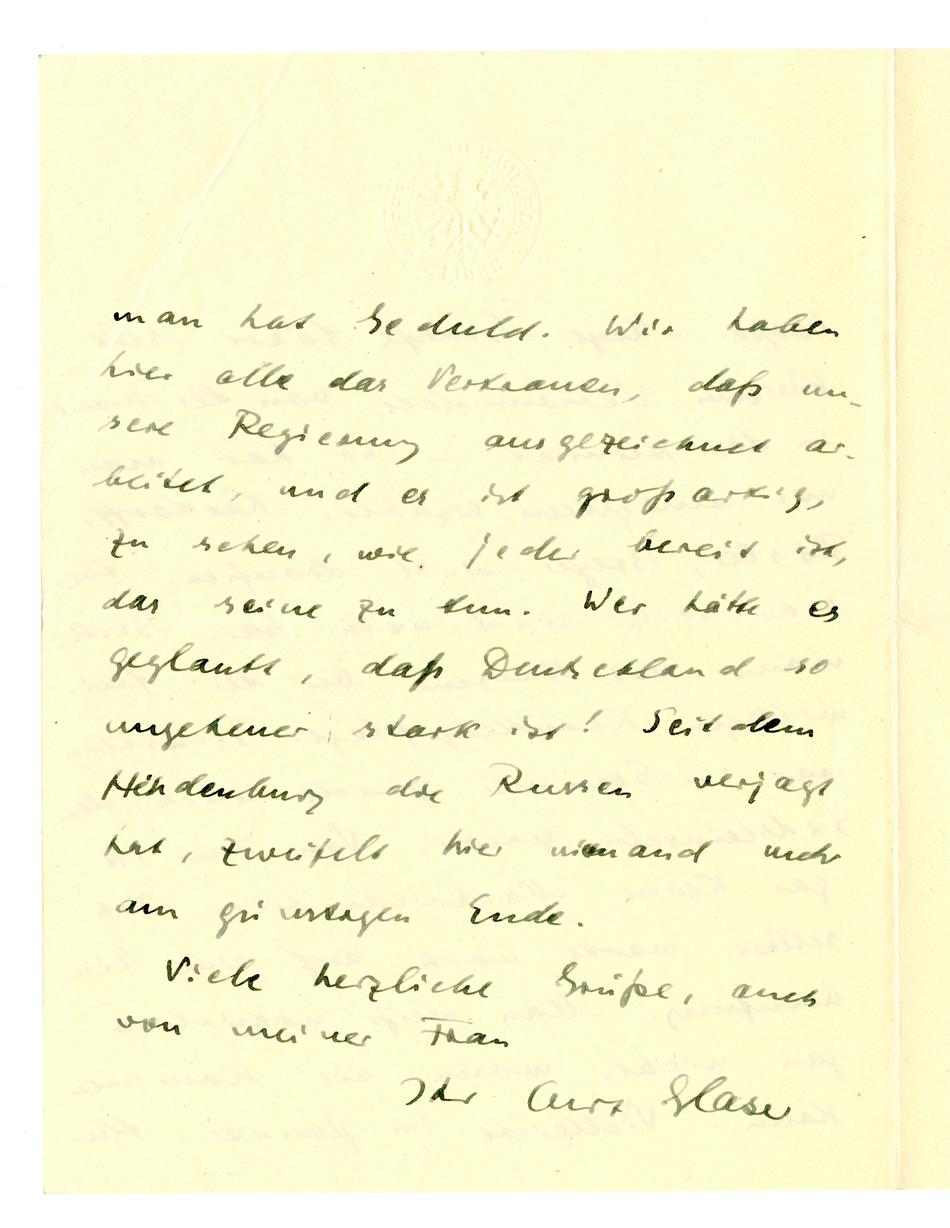 man hat Geduld. Wir haben
hier alle das Vertrauen, daß un-
sere Regierung ausgezeichnet ar-
beitet, und es ist großartig,
zu sehen, wie jeder bereit ist,
das seine zu tun. Wer hätte es
geglaubt, daß Deutschland so
ungeheuer stark ist! Seitdem
Hindenburg die Russen verjagt
hat, zweifelt hier niemand mehr
am günstigen Ende.
Viele herzliche Grüße, auch
von meiner Frau
Ihr Curt Glaser